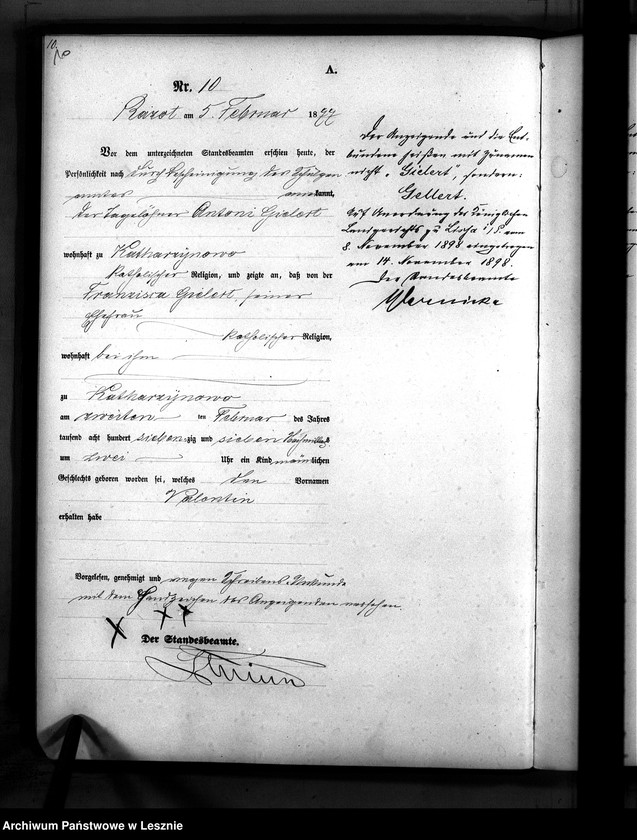 10
A.
Nr. 10
Razot am 5. Februar 1877
Vor dem unterzeichneten Standesbeamten erschien heute, der
Persönlichkeit nach durch Bescheinigung des Schulzen
amtes anerkannt,
der Tagelöhner Antoni Gielert
wohnhaft zu Katharzynowo
katholischer Religion, und zeigte an, daß von der
Franzisca Gielert, seiner
Ehefrau
katholischer Religion,
wohnhaft bei ihm
zu Katharzynowo
am zweiten ten Februar des Jahres
tausend acht hundert siebenzig und sieben Nachmittags
um zwei Uhr ein Kind männlichen
Geschlechts geboren worden sei, welches den Vornamen
Valentin
erhalten habe
Vorgelesen, genehmigt und wegen Schreibens Unkunde
mit dem Handzeichen des Anzeigenden versehen.
X X X
Der Standesbeamte.
Der Anzeigende und die Ent-
bundene heißen mit Zunamen
nicht „Gielert", sondern:
Gellert.
Auf Anordnung des Königlichen
Landgerichts zu Lissa i/P. vom
8. November 1898 eingetragen
am 14. November 1898.
Der Standesbeamte
Archiwum Państwowe w Lesznie